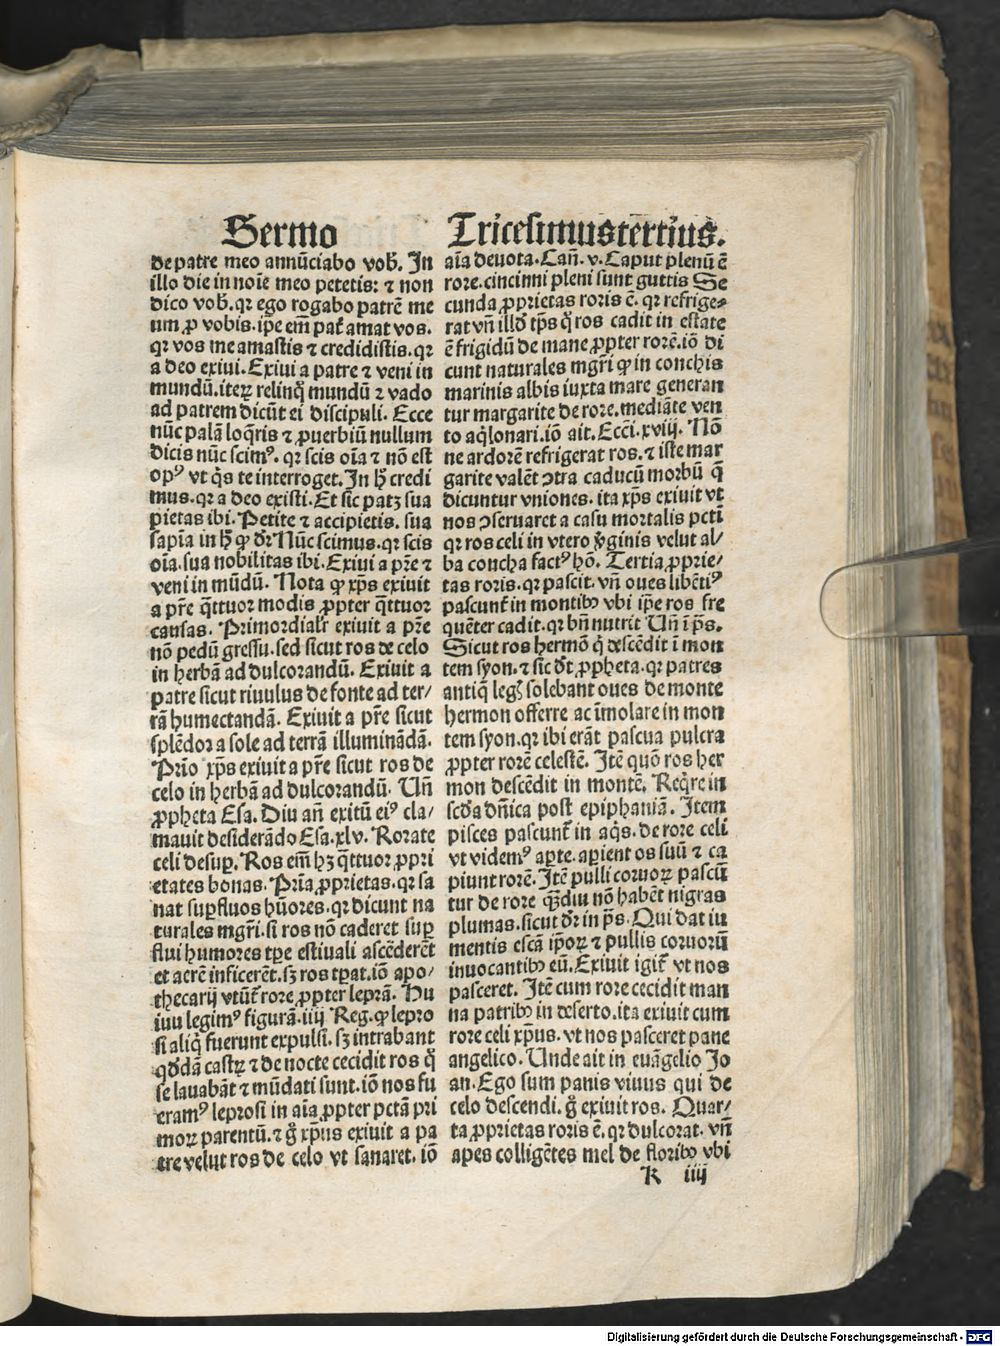 Sermo
de patre meo annūciabo vob̄. In
illo die in noīe meo petetis: ⁊ non
dico vob̄. qꝛ ego rogabo patrē me
um ꝓ vobis. ip̄e em̄ pat̄ amat vos.
qꝛ vos me amastis ⁊ credidistis. qꝛ
a deo exiui. Exiui a patre ⁊ veni in
mundū. iteꝝ relinq̄ mundū ⁊ vado
ad patrem dicūt ei discipuli. Ecce
nūc palā loq̄ris ⁊ ꝓuerbiū nullum
dicis nūc scimꝰ. qꝛ scis oīa ⁊ nō est
opꝰ vt q̄s te interroget. In h̄ credi
mus. qꝛ a deo existi. Et sic patꝫ sua
pietas ibi. Petite ⁊ accipietis. sua
sapīa in h̄ ꝙ dr̄ Nūc scimus. qꝛ scis
oīa. sua nobilitas ibi. Exiui a pr̄e ⁊
veni in mūdū. Nota ꝙ xp̄s exiuit
a pr̄e q̄ttuor modis ꝓpter q̄ttuor
causas. Primordialr̄ exiuit a pr̄e
nō pedū gressu. sed sicut ros de celo
in herbā ad dulcorandū. Exiuit a
patre sicut riuulus de fonte ad ter/
rā humectandā. Exiuit a pr̄e sicut
splēdor a sole ad terrā illumināda̅.
Prīo xp̄s exiuit a pr̄e sicut ros de
celo in herbā ad dulcorandū. Un̄
ꝓpheta Esa. Diu an̄ exitū eiꝰ cla/
mauit desiderādo Esa. xlv. Rorate
celi desuꝑ. Ros em̄ hꝫ q̄ttuor ꝓpri
etates bonas. Prīa ꝓprietas. qꝛ sa
nat suꝑfluos hūores. qꝛ dicunt na
turales mgr̄i. si ros nō caderet suꝑ
flui humores tꝑe estiuali ascēderēt
et aerē inficerēt. sꝫ ros tꝑat. iō apo/
thecarij vtūt̄ rore ꝓpter leprā. Hu
iuu legimꝰ figurā. iiij Reg. ꝙ lepro
si aliq̄ fuerunt expulsi. sꝫ intrabant
q̄dā castꝝ ⁊ de nocte cecidit ros q̄
se lauabāt ⁊ mūdati sunt. iō nos fu
eramꝰ leprosi in aīa ꝓpter pctā pri
moꝝ parentū. ⁊ g̊ xp̄us exiuit a pa
tre velut ros de celo vt sanaret. iō
Tricesimustertius.
aīa deuota. Can̄. v. Caput plenū ē
rore. cincinni pleni sunt guttis Se
cunda ꝓprietas roris ē. qꝛ refrige⸗
rat vn̄ illd̄ tp̄s q̄ ros cadit in estate
ē frigidū de mane ꝓpter rorē. iō di
cunt naturales mgr̄i ꝙ in conchis
marinis albis iuxta mare generan
tur margarite de rore. mediāte ven
to aq̄lonari. iō ait. Ecci̅. xviij. Nō
ne ardorē refrigerat ros. ⁊ iste mar
garite valēt ꝯtra caducū morbū q̄
dicuntur vniones. ita xp̄s exiuit vt
nos ꝯseruaret a casu mortalis pctī
qꝛ ros celi in vtero v̄ginis velut al/
ba concha factꝰ hō. Tertia ꝓprie/
tas roris. qꝛ pascit. vn̄ oues libētiꝰ
pascunt̄ in montibꝰ vbi ip̄e ros fre
quēter cadit. qꝛ bn̄ nutrit Un̄ ī p̄s.
Sicut ros hermō q̄ descēdit ī mon
tem syon. ⁊ sic dt̄ ꝓpheta. qꝛ patres
antiq̄ leḡ solebant oues de monte
hermon offerre ac īmolare in mon
tem syon. qꝛ ibi erāt pascua pulcra
ꝓpter rorē celestē. Itē quō ros her
mon descēdit in montē. Req̄re in
scd̄a dn̄ica post epiphaniā. Item
pisces pascunt̄ in aq̄s. de rore celi
vt videmꝰ aꝑte. aꝑient os suū ⁊ ca
piunt rorē. Itē pulli coruoꝝ pascū
tur de rore qͣ̄diu nō habēt nigras
plumas. sicut dr̄ in p̄s. Qui dat iu
mentis escā ip̄oꝝ ⁊ pullis coruorū
inuocantibꝰ eū. Exiuit igit̄ vt nos
pasceret. Itē cum rore cecidit man
na patribꝰ in deserto. ita exiuit cum
rore celi xp̄us. vt nos pasceret pane
angelico. Unde ait in euāgelio Jo
an. Ego sum panis viuus qui de
celo descendi. g̊ exiuit ros. Quar/
ta ꝓprietas roris ē. qꝛ dulcorat. vn̄
apes colligētes mel de floribꝰ vbi
K iiij
Digitalisierung gefördert durch die Deutsche Forschungsgemeinschaft - DFG